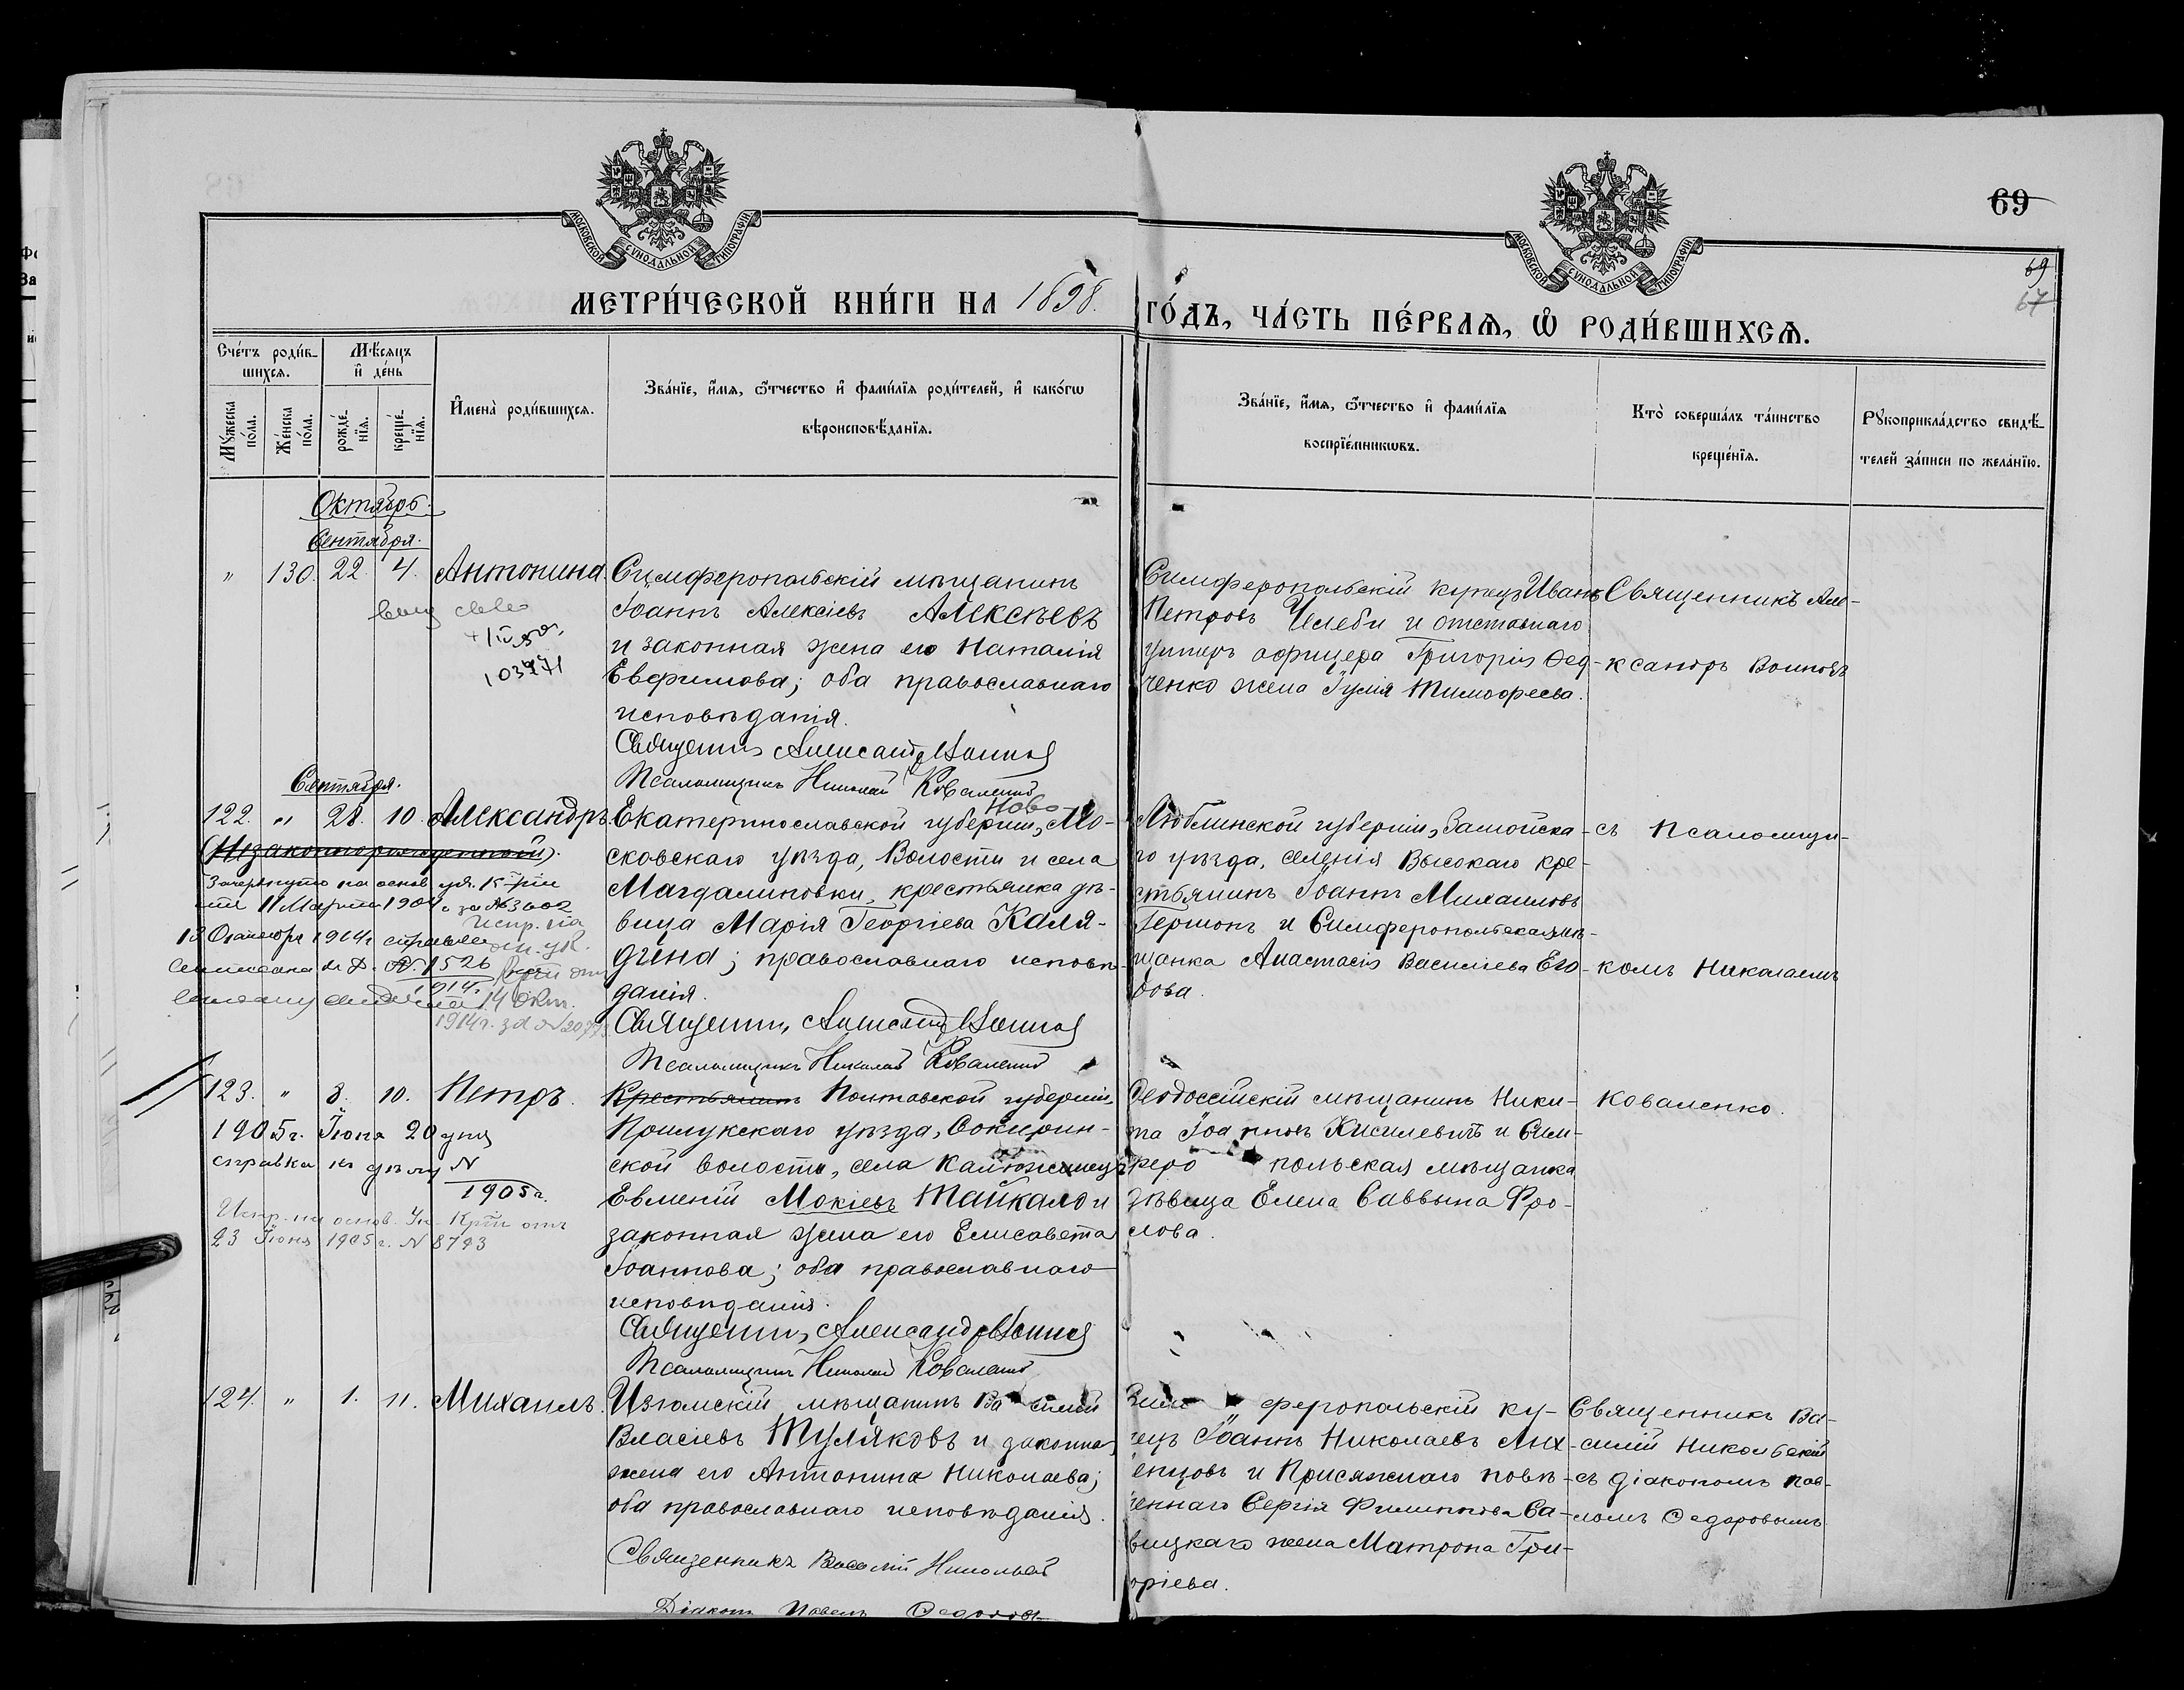 69
69
67
МОСКОВСКОЙ СѴНОДАЛЬНОЙ ТИПОГРАФІИ
МОСКОВСКОЙ СѴНОДАЛЬНОЙ ТИПОГРАФІИ
МЕТРИ́ЧЕСКОЙ КНИ́ГИ НА 1898. ГО́ДЪ, ЧА́СТЬ ПЕ́РВАѦ, Ѡ РОДИ́ВШИХСѦ.
Сче́тъ роди́в-
шихсѧ.
Мꙋжеска по́ла.
Же́нска по́ла.
Мѣ́сѧцъ и҆ де́нь
рожде́-
нїѧ.
креще́-
нїѧ.
И҆мена̀ роди́вшихсѧ.
Зва́нїе, и҆́мѧ, ѻ҆́тчество и҆ фами́лїѧ роди́телей, и҆ како́гѡ
вѣроисповѣ́данїѧ.
Зва́нїе, и҆́мѧ, ѻ҆́тчество и҆ фами́лїѧ
воспрїе́мникѡвъ.
Кто̀ соверша́лъ та́инство
креще́нїѧ.
Рꙋкоприкла́дство свидѣ́-
телей за́писи по жела́нїю.
Октябрь.
Сентября.
" 130. 22. 4. Антонина.
103971
Симферопольскій мѣщанинъ
Іоаннъ Алексіевъ Алексѣевъ
и законная жена его Наталія
Евфимова; оба православнаго
исповѣданія.
Священникъ Александръ Воиновъ
Псаломщикъ Николай Коваленко
Симферопольскій купецъ Иванъ
Петровъ Челеби и отставнаго
унтеръ офицера Григорія Фед-
ченко жена Іулія Тимофеева.
Священникъ Але-
ксандръ Воиновъ
Сентября.
122. " 28. 10. Александръ
(Незаконнорожденный).
Зачеркнуто на основ. ук. К-ріи
отъ 11 Марта 1904 г. за № 3602
Испр. на
13 Октября 1914 г. справка
осн. ук.
№ 1526
1914.
14 Окт.
1914 г. за № 2077
Екатеринославской губерніи, Ново-Мо-
сковскаго уѣзда, Волости и села
Магдалиновки, крестьянка дѣ-
вица Марія Георгіева Каля-
гина; православнаго исповѣ-
данія.
Священникъ Александръ Воиновъ
Псаломщикъ Николай Коваленко
Люблинской губерніи, Замойска-
го уѣзда, селенія Высокаго кре-
стьянинъ Іоаннъ Михаиловъ
Гермонъ и Симферопольская мѣ-
щанка Анастасія Василіева Его-
рова.
съ псаломщи-
комъ Николаемъ
Коваленко.
123. " 3. 10. Петръ.
1905 г. Іюня 20 дня
справка къ дѣлу №
1905 г.
Испр. на основ. Ук. К-ріи отъ
23 Іюня 1905 г. № 8793
Крестьянинъ Полтавской губерніи,
Прилукскаго уѣзда, Сокирин-
ской волости, села Калюжинецъ
Евменій Мокіевъ Тайкало и
законная жена его Елисавета
Іоаннова; оба православнаго
исповѣданія.
Священникъ Александръ Воиновъ
Псаломщикъ Николай Коваленко
Феодосійскій мѣщанинъ Ники-
та Іоанновъ Кисилевичъ и Сим-
феропольская мѣщанка
дѣвица Елена Саввына Фро-
лова.
124. " 1. 11. Михаилъ.
Изюмскій мѣщанинъ Василій
Власіевъ Туляковъ и законная
жена его Антонина Николаева;
оба православнаго исповѣданія.
Священникъ Василій Никольскій
Діаконъ Павелъ Федоровъ
Симферопольскій ку-
пецъ Іоаннъ Николаевъ Анх-
енцовъ и Присяжнаго повѣ-
реннаго Сергія Филиппова Са-
вицкаго жена Матрона Гри-
горіева.
Священникъ Ва-
силій Никольскій
съ діакономъ Пав-
ломъ Федоровымъ